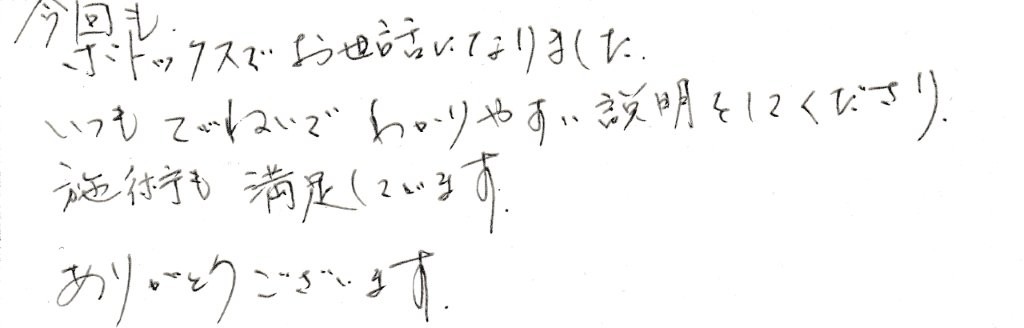 今回も
ボトックスでお世話になりました.
いつもていねいで わかりやすい説明をしてくださり.
施術も 満足しています.
ありがとうございます.